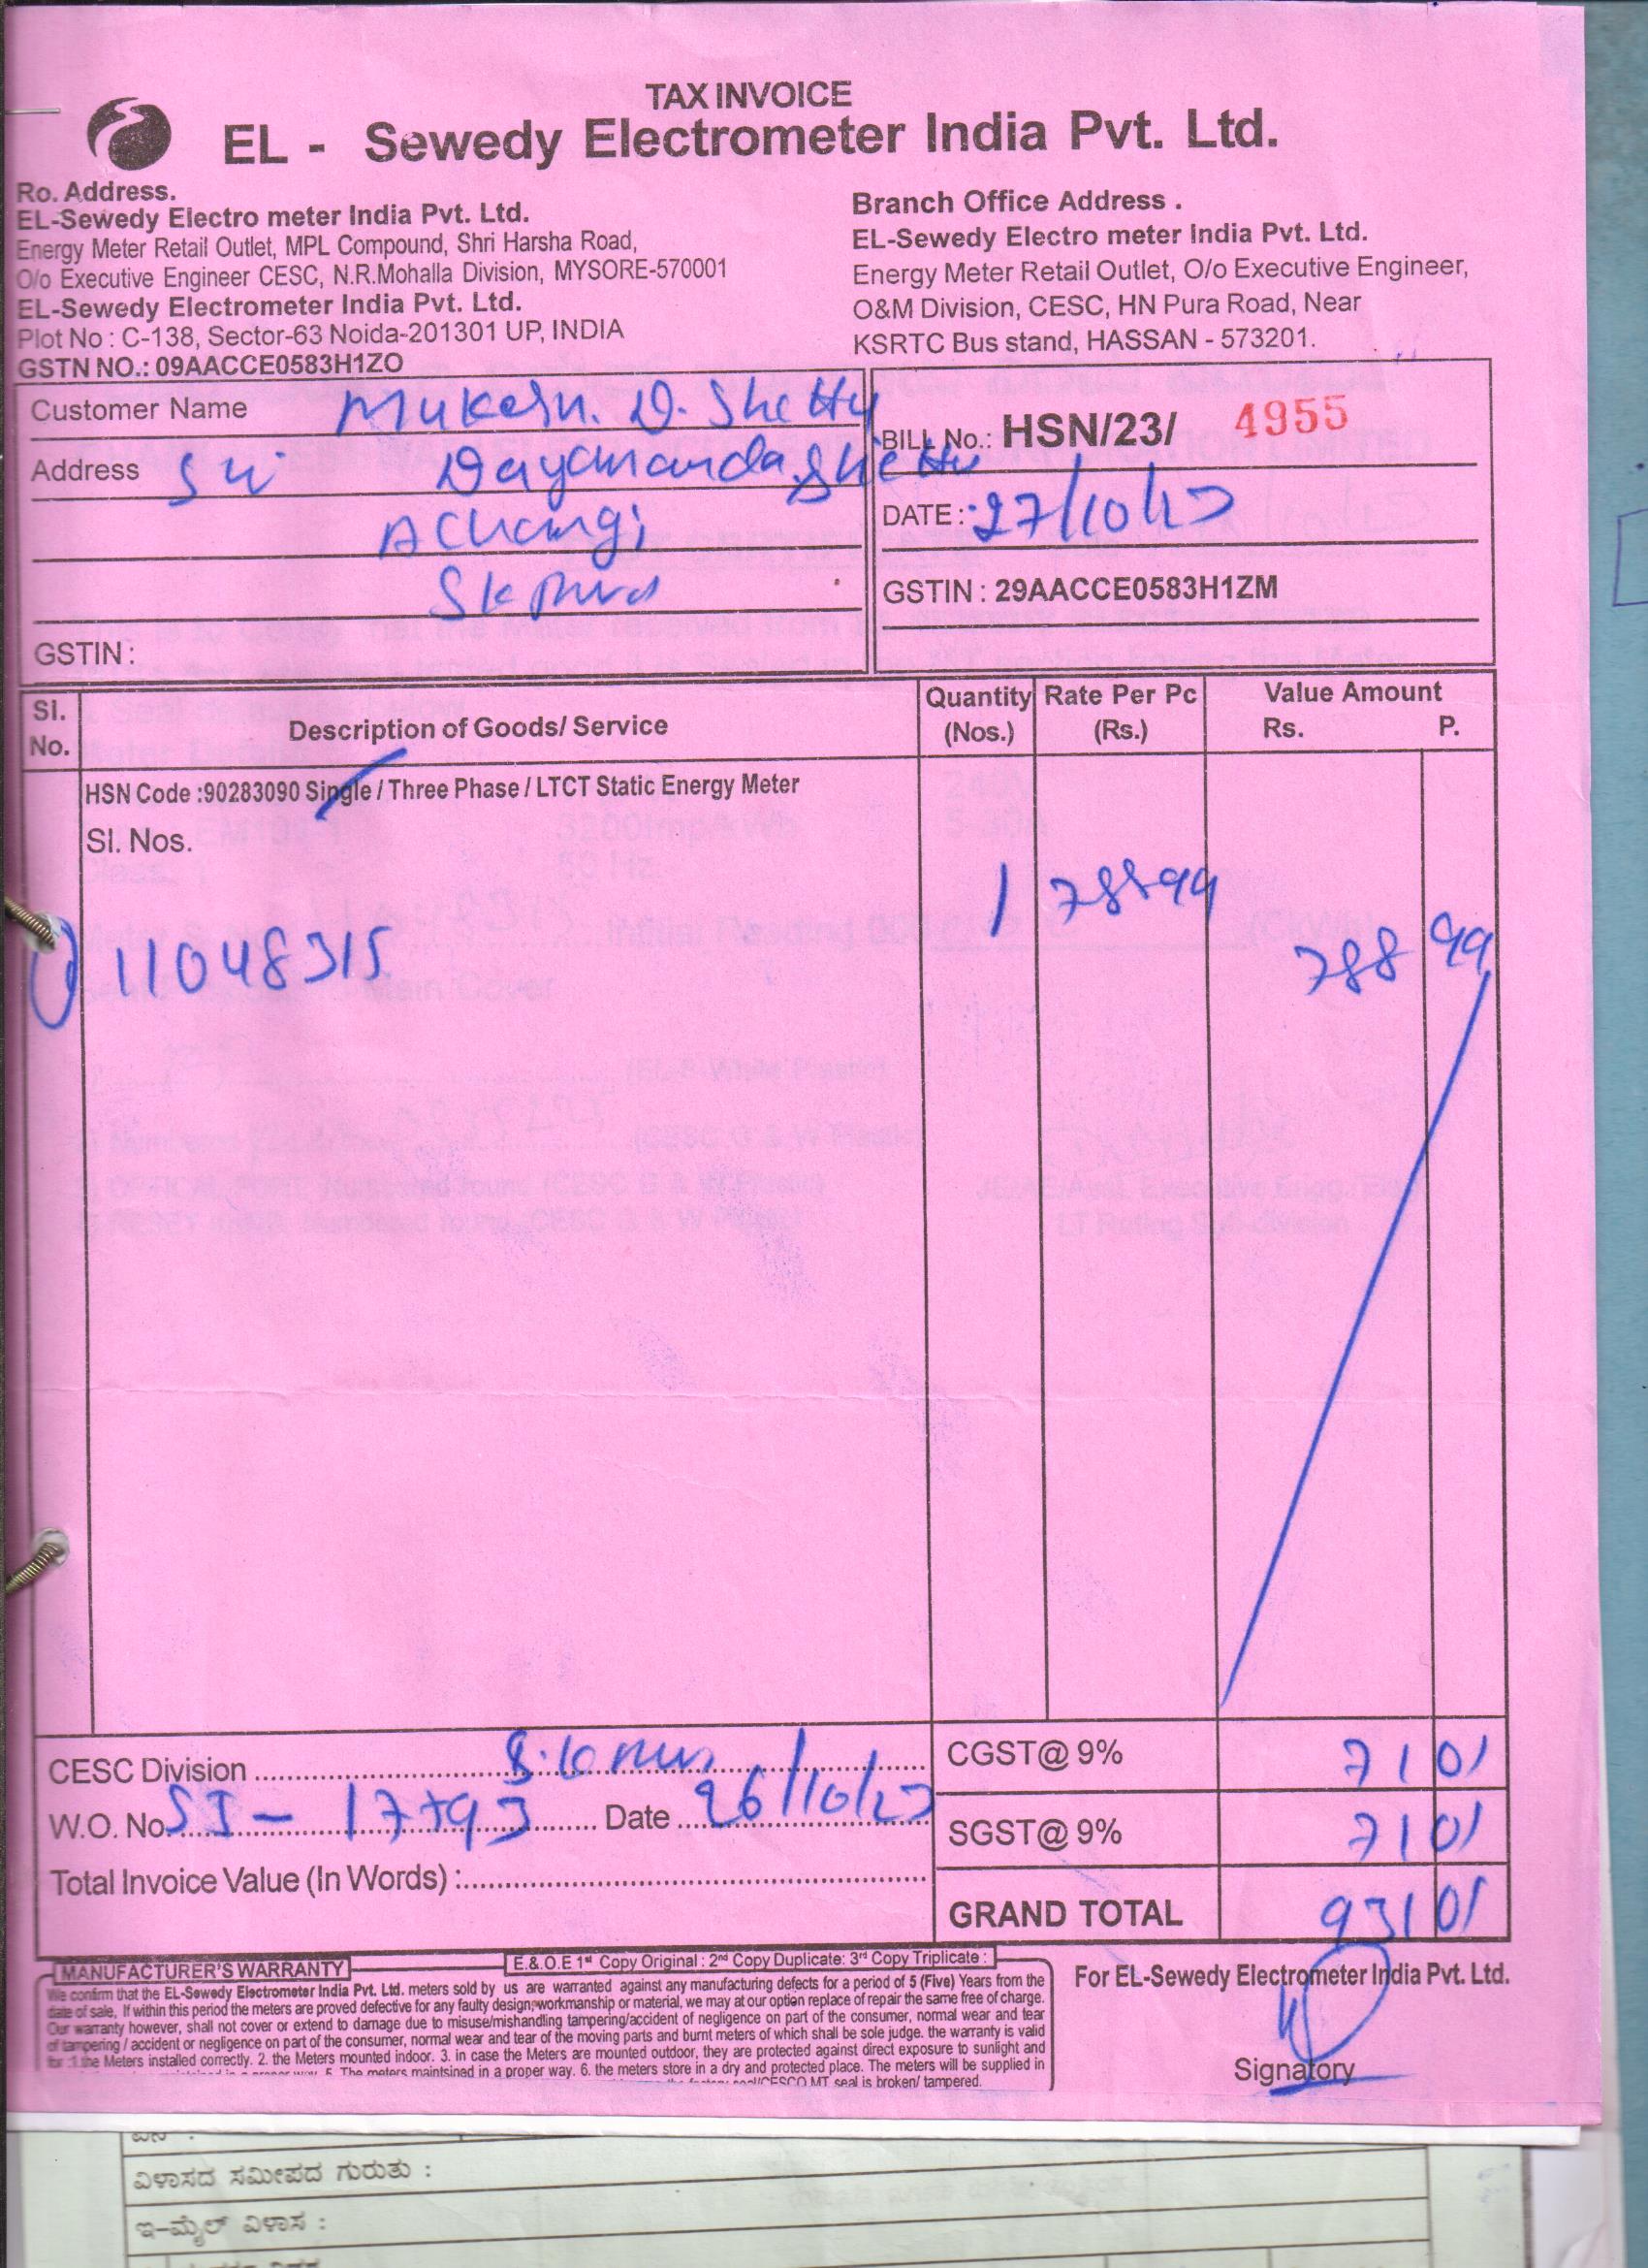 TAX INVOICE
EL - Sewedy Electrometer India Pvt. Ltd.
Ro. Address.
EL-Sewedy Electro meter India Pvt. Ltd.
Energy Meter Retail Outlet, MPL Compound, Shri Harsha Road,
O/o Executive Engineer CESC, N.R.Mohalla Division, MYSORE-570001
EL-Sewedy Electrometer India Pvt. Ltd.
Plot No : C-138, Sector-63 Noida-201301 UP, INDIA
GSTN NO.: 09AACCE0583H1ZO
Branch Office Address .
EL-Sewedy Electro meter India Pvt. Ltd.
Energy Meter Retail Outlet, O/o Executive Engineer,
O&M Division, CESC, HN Pura Road, Near
KSRTC Bus stand, HASSAN - 573201.
Customer Name Mukesh. D. Shetty
Address Dayananda Shetty
Achangi
SKPura
GSTIN :
BILL No.: HSN/23/ 4955
DATE : 27/10/23
GSTIN : 29AACCE0583H1ZM
Sl. No. Description of Goods/ Service Quantity (Nos.) Rate Per Pc (Rs.) Value Amount Rs. P.
HSN Code :90283090 Single / Three Phase / LTCT Static Energy Meter
Sl. Nos.
1 788 99
11048315 788 99
CESC Division
W.O. No SJ - 17793 Date 26/10/23
Total Invoice Value (In Words) :
CGST@ 9% 71 01
SGST@ 9% 71 01
GRAND TOTAL 931 01
E.& O.E 1st Copy Original : 2nd Copy Duplicate: 3rd Copy Triplicate :
MANUFACTURER'S WARRANTY
We confirm that the EL-Sewedy Electrometer India Pvt. Ltd. meters sold by us are warranted against any manufacturing defects for a period of 5 (Five) Years from the
date of sale, If within this period the meters are proved defective for any faulty design,workmanship or material, we may at our option replace of repair the same free of charge.
Our warranty however, shall not cover or extend to damage due to misuse/mishandling tampering/accident of negligence on part of the consumer, normal wear and tear
of tampering / accident or negligence on part of the consumer, normal wear and tear of the moving parts and burnt meters of which shall be sole judge. the warranty is valid
for :1.the Meters installed correctly. 2. the Meters mounted indoor. 3. in case the Meters are mounted outdoor, they are protected against direct exposure to sunlight and
5. The meters maintsined in a proper way. 6. the meters store in a dry and protected place. The meters will be supplied in
seal/CESCO MT seal is broken/ tampered.
For EL-Sewedy Electrometer India Pvt. Ltd.
Signatory
ವಿಳಾಸದ ಸಮೀಪದ ಗುರುತು :
ಇ-ಮೈಲ್ ವಿಳಾಸ :